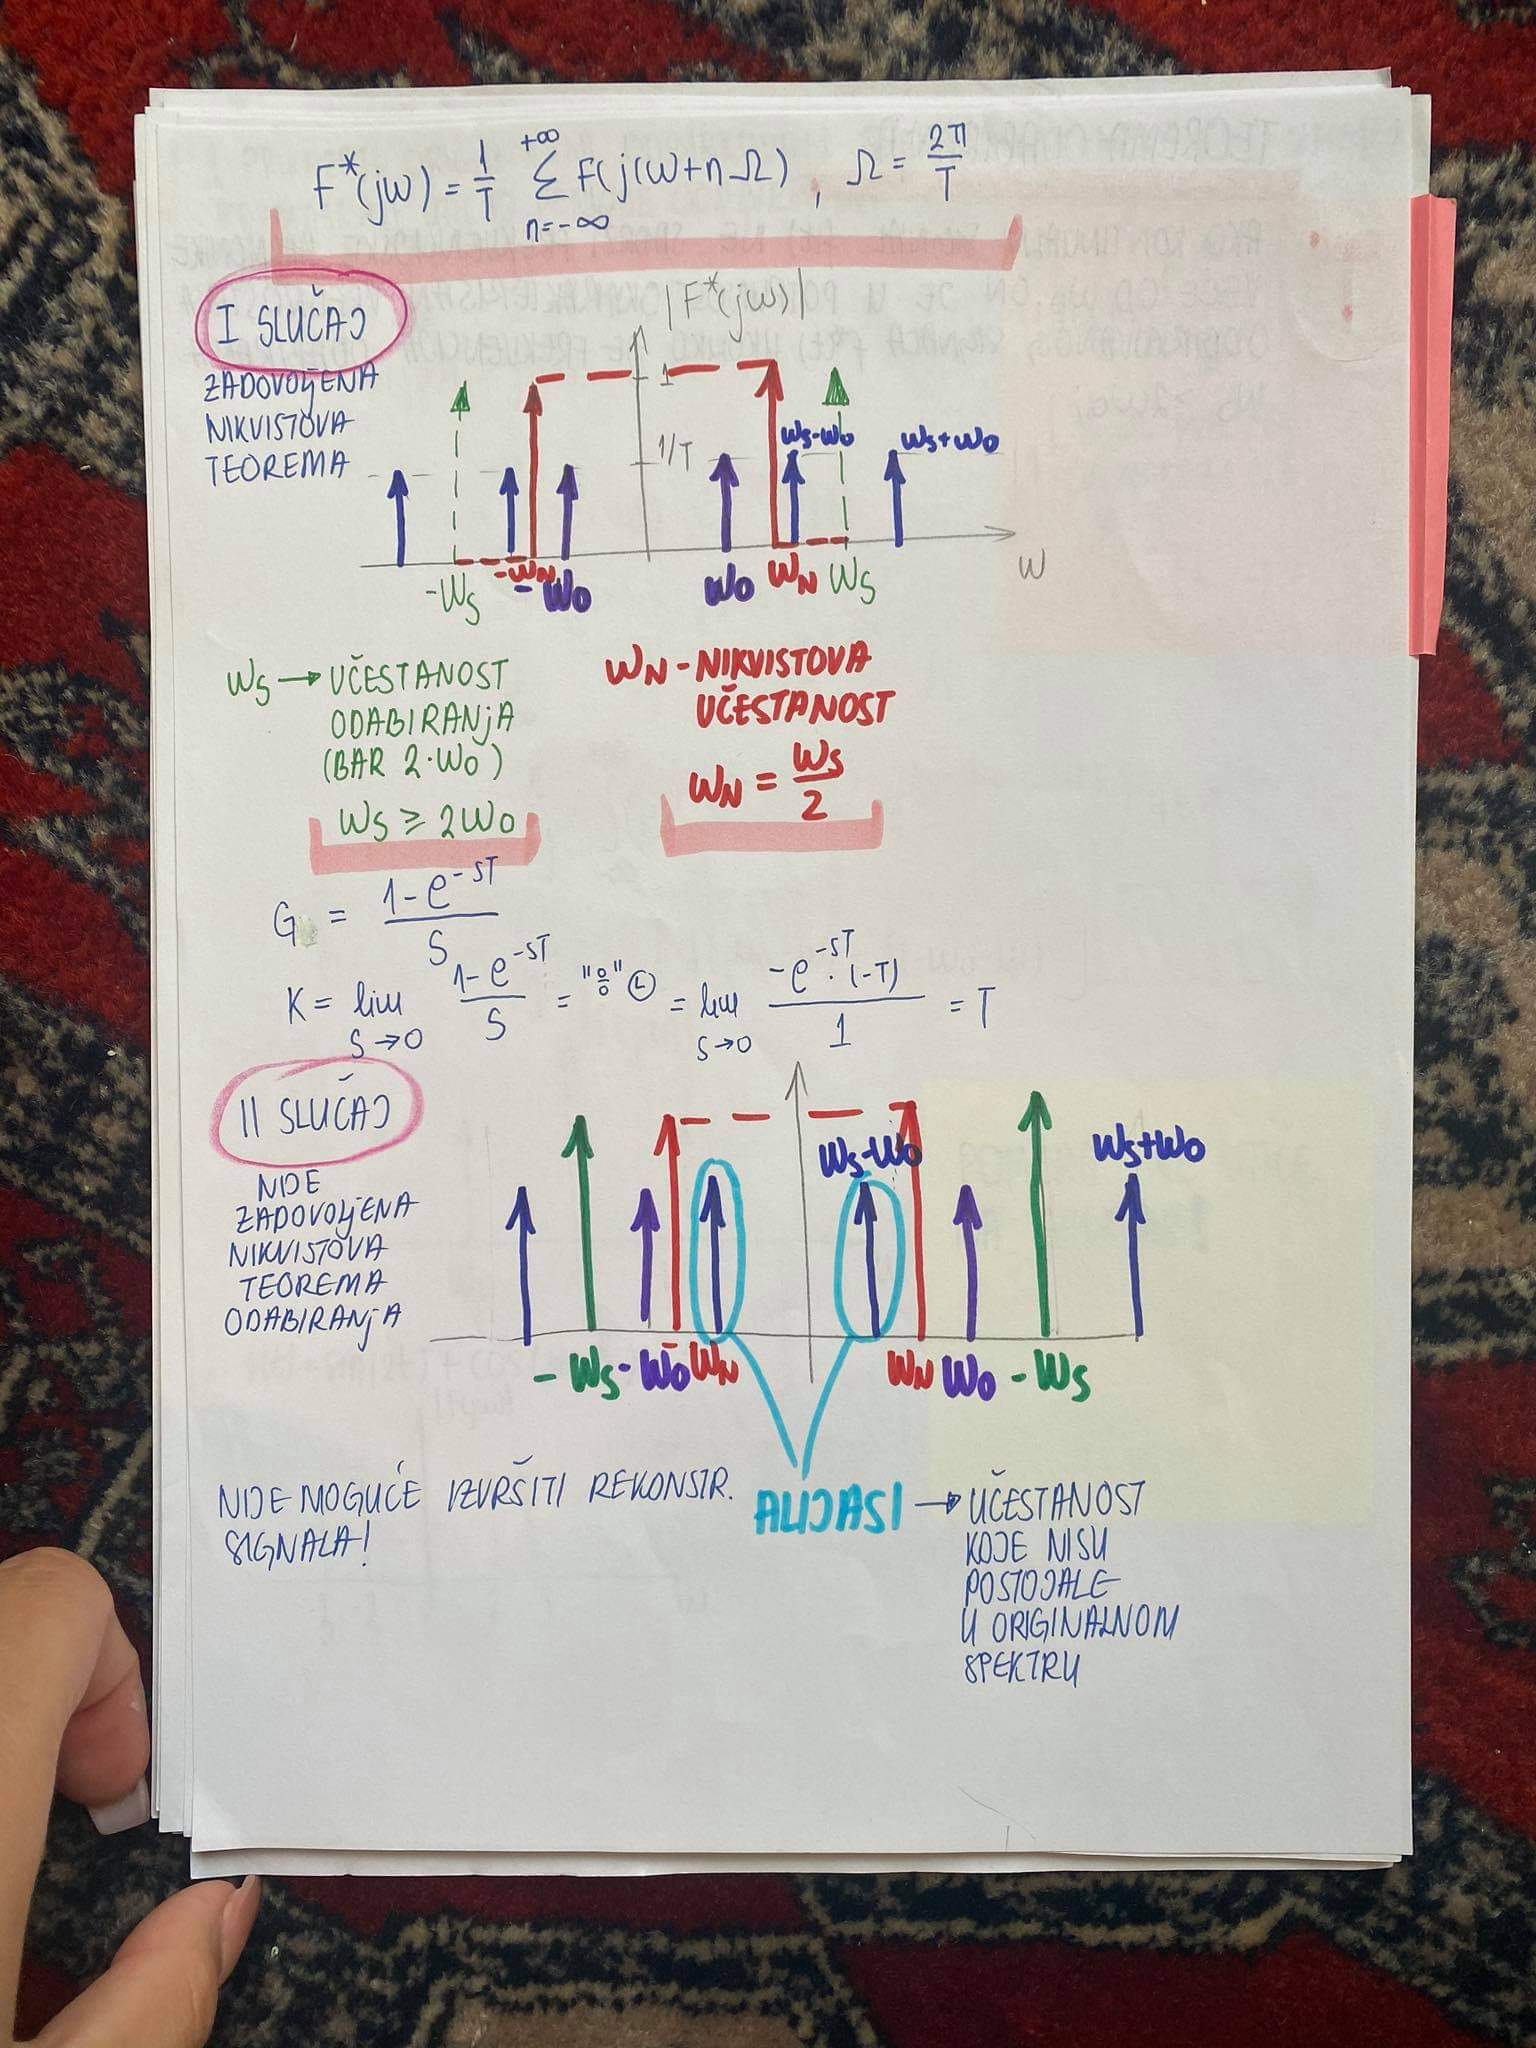 F*(jω) = 1/T Σ F(j(ω+nΩ) , Ω = 2π/T
+∞
n=-∞
I SLUČAJ
|F*(jω)|
ZADOVOLJENA
NIKVISTOVA
TEOREMA
1
1/T
ωs-ω0
ωs+ω0
-ωs
-ωN
-ω0
ω0
ωN
ωs
ω
ωs → UČESTANOST
ODABIRANJA
(BAR 2·ω0)
ωs ≥ 2ω0
ωN - NIKVISTOVA
UČESTANOST
ωN = ωs/2
G = 1-e^-sT / s
K = lim s→0 1-e^-sT / s = "0/0" L = lim s→0 -e^-sT · (-T) / 1 = T
II SLUČAJ
NIJE
ZADOVOLJENA
NIKVISTOVA
TEOREMA
ODABIRANJA
ωs-ω0
ωs+ω0
-ωs
-ω0
-ωN
ωN
ω0
-ωs
NIJE MOGUĆE IZVRŠITI REKONSTR.
SIGNALA!
ALIJASI → UČESTANOST
KOJE NISU
POSTOJALE
U ORIGINALNOM
SPEKTRU